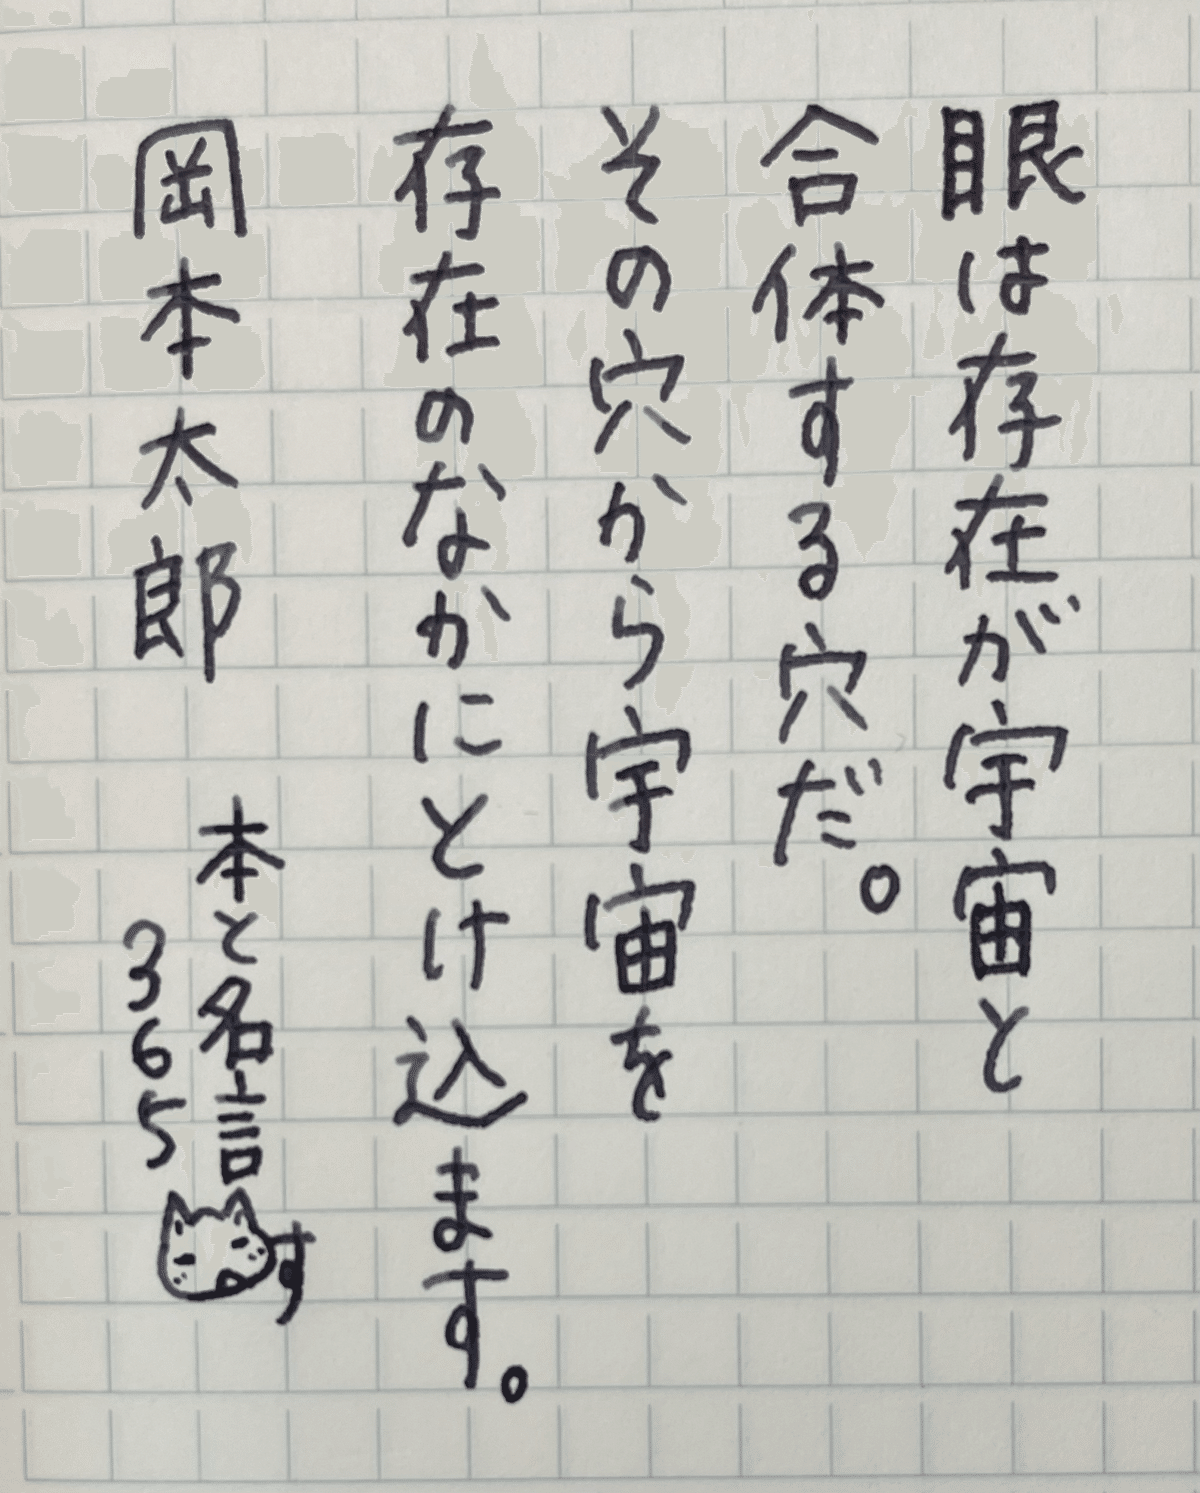 眼は存在が宇宙と
合体する穴だ。
その穴から宇宙を
存在のなかにとけ込ます。
岡本太郎
本と名言
365
す